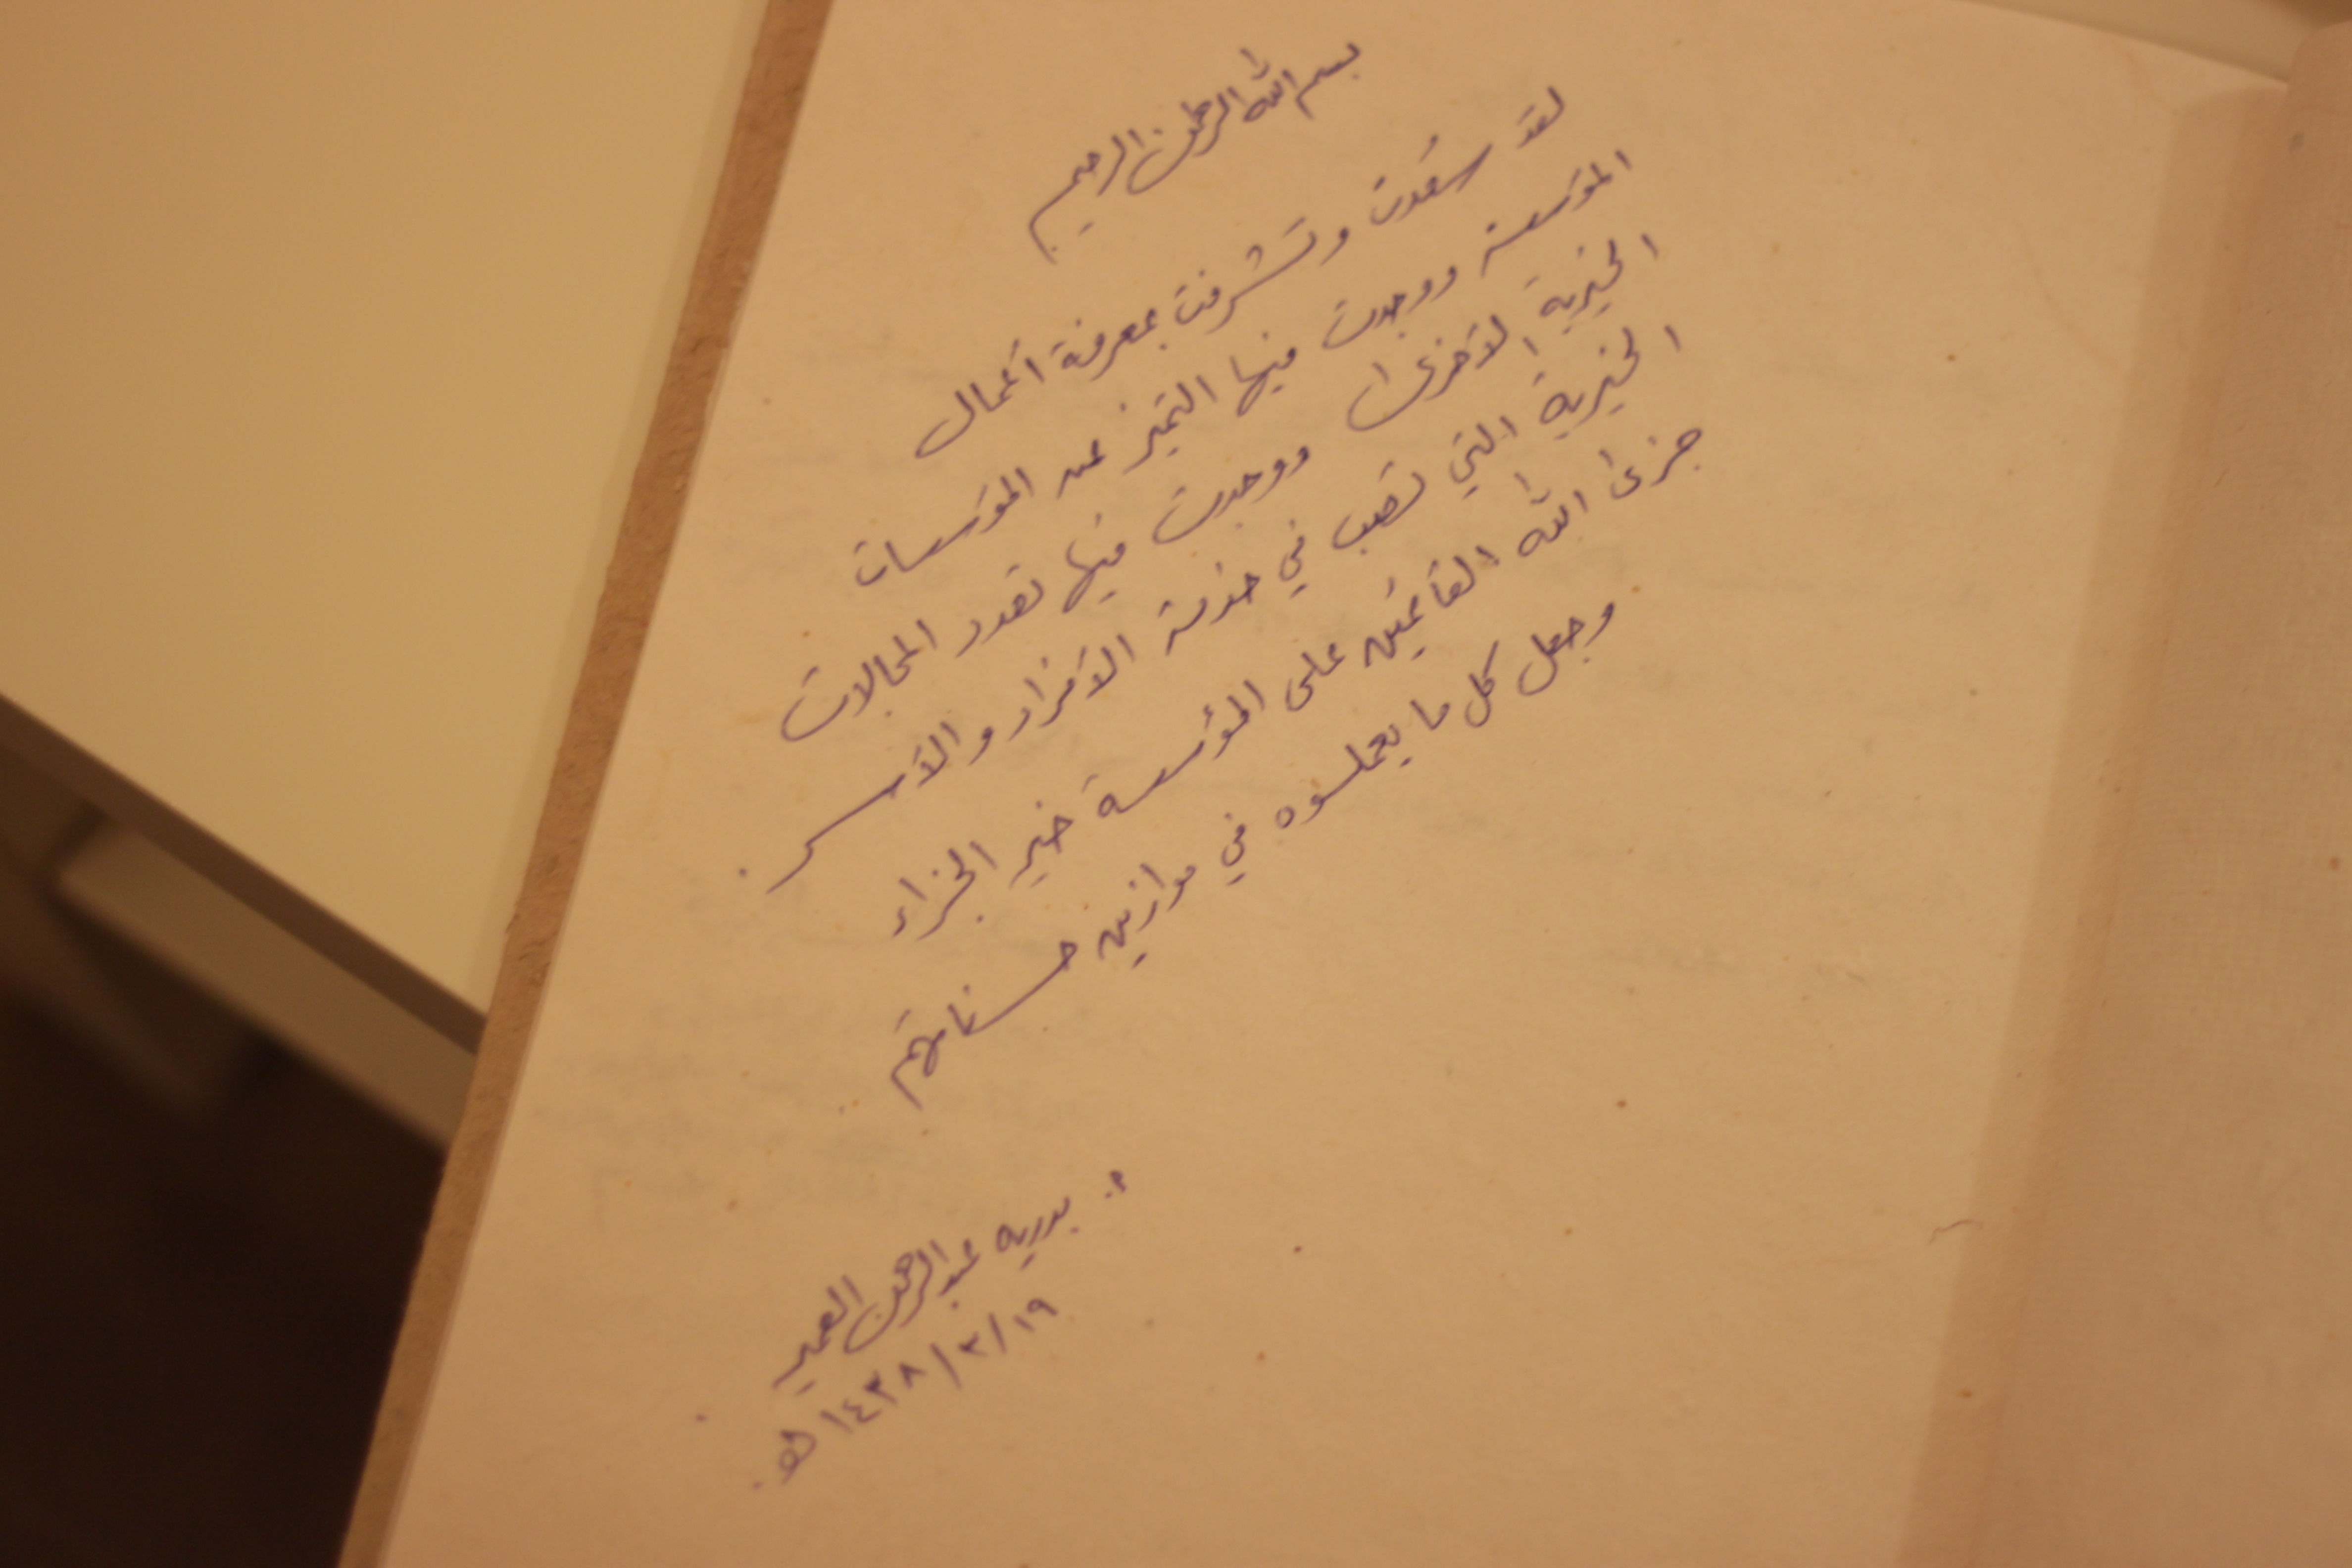 بسم الله الرحمن الرحيم
لقد سعدت وتشرفت بمعرفة أعمال
المؤسسة ووجدت فيها التميز عن المؤسسات
الخيرية الأخرى ووجدت فيها تعدد المجالات
الخيرية التي تصب في خدمة الأفراد والأسر .
جزى الله القائمين على المؤسسة خير الجزاء
وجعل كل ما يعملوه في موازين حسناتهم
بدريه عبدالرحمن العمير
١٤٣٨/٣/١٩ هـ .